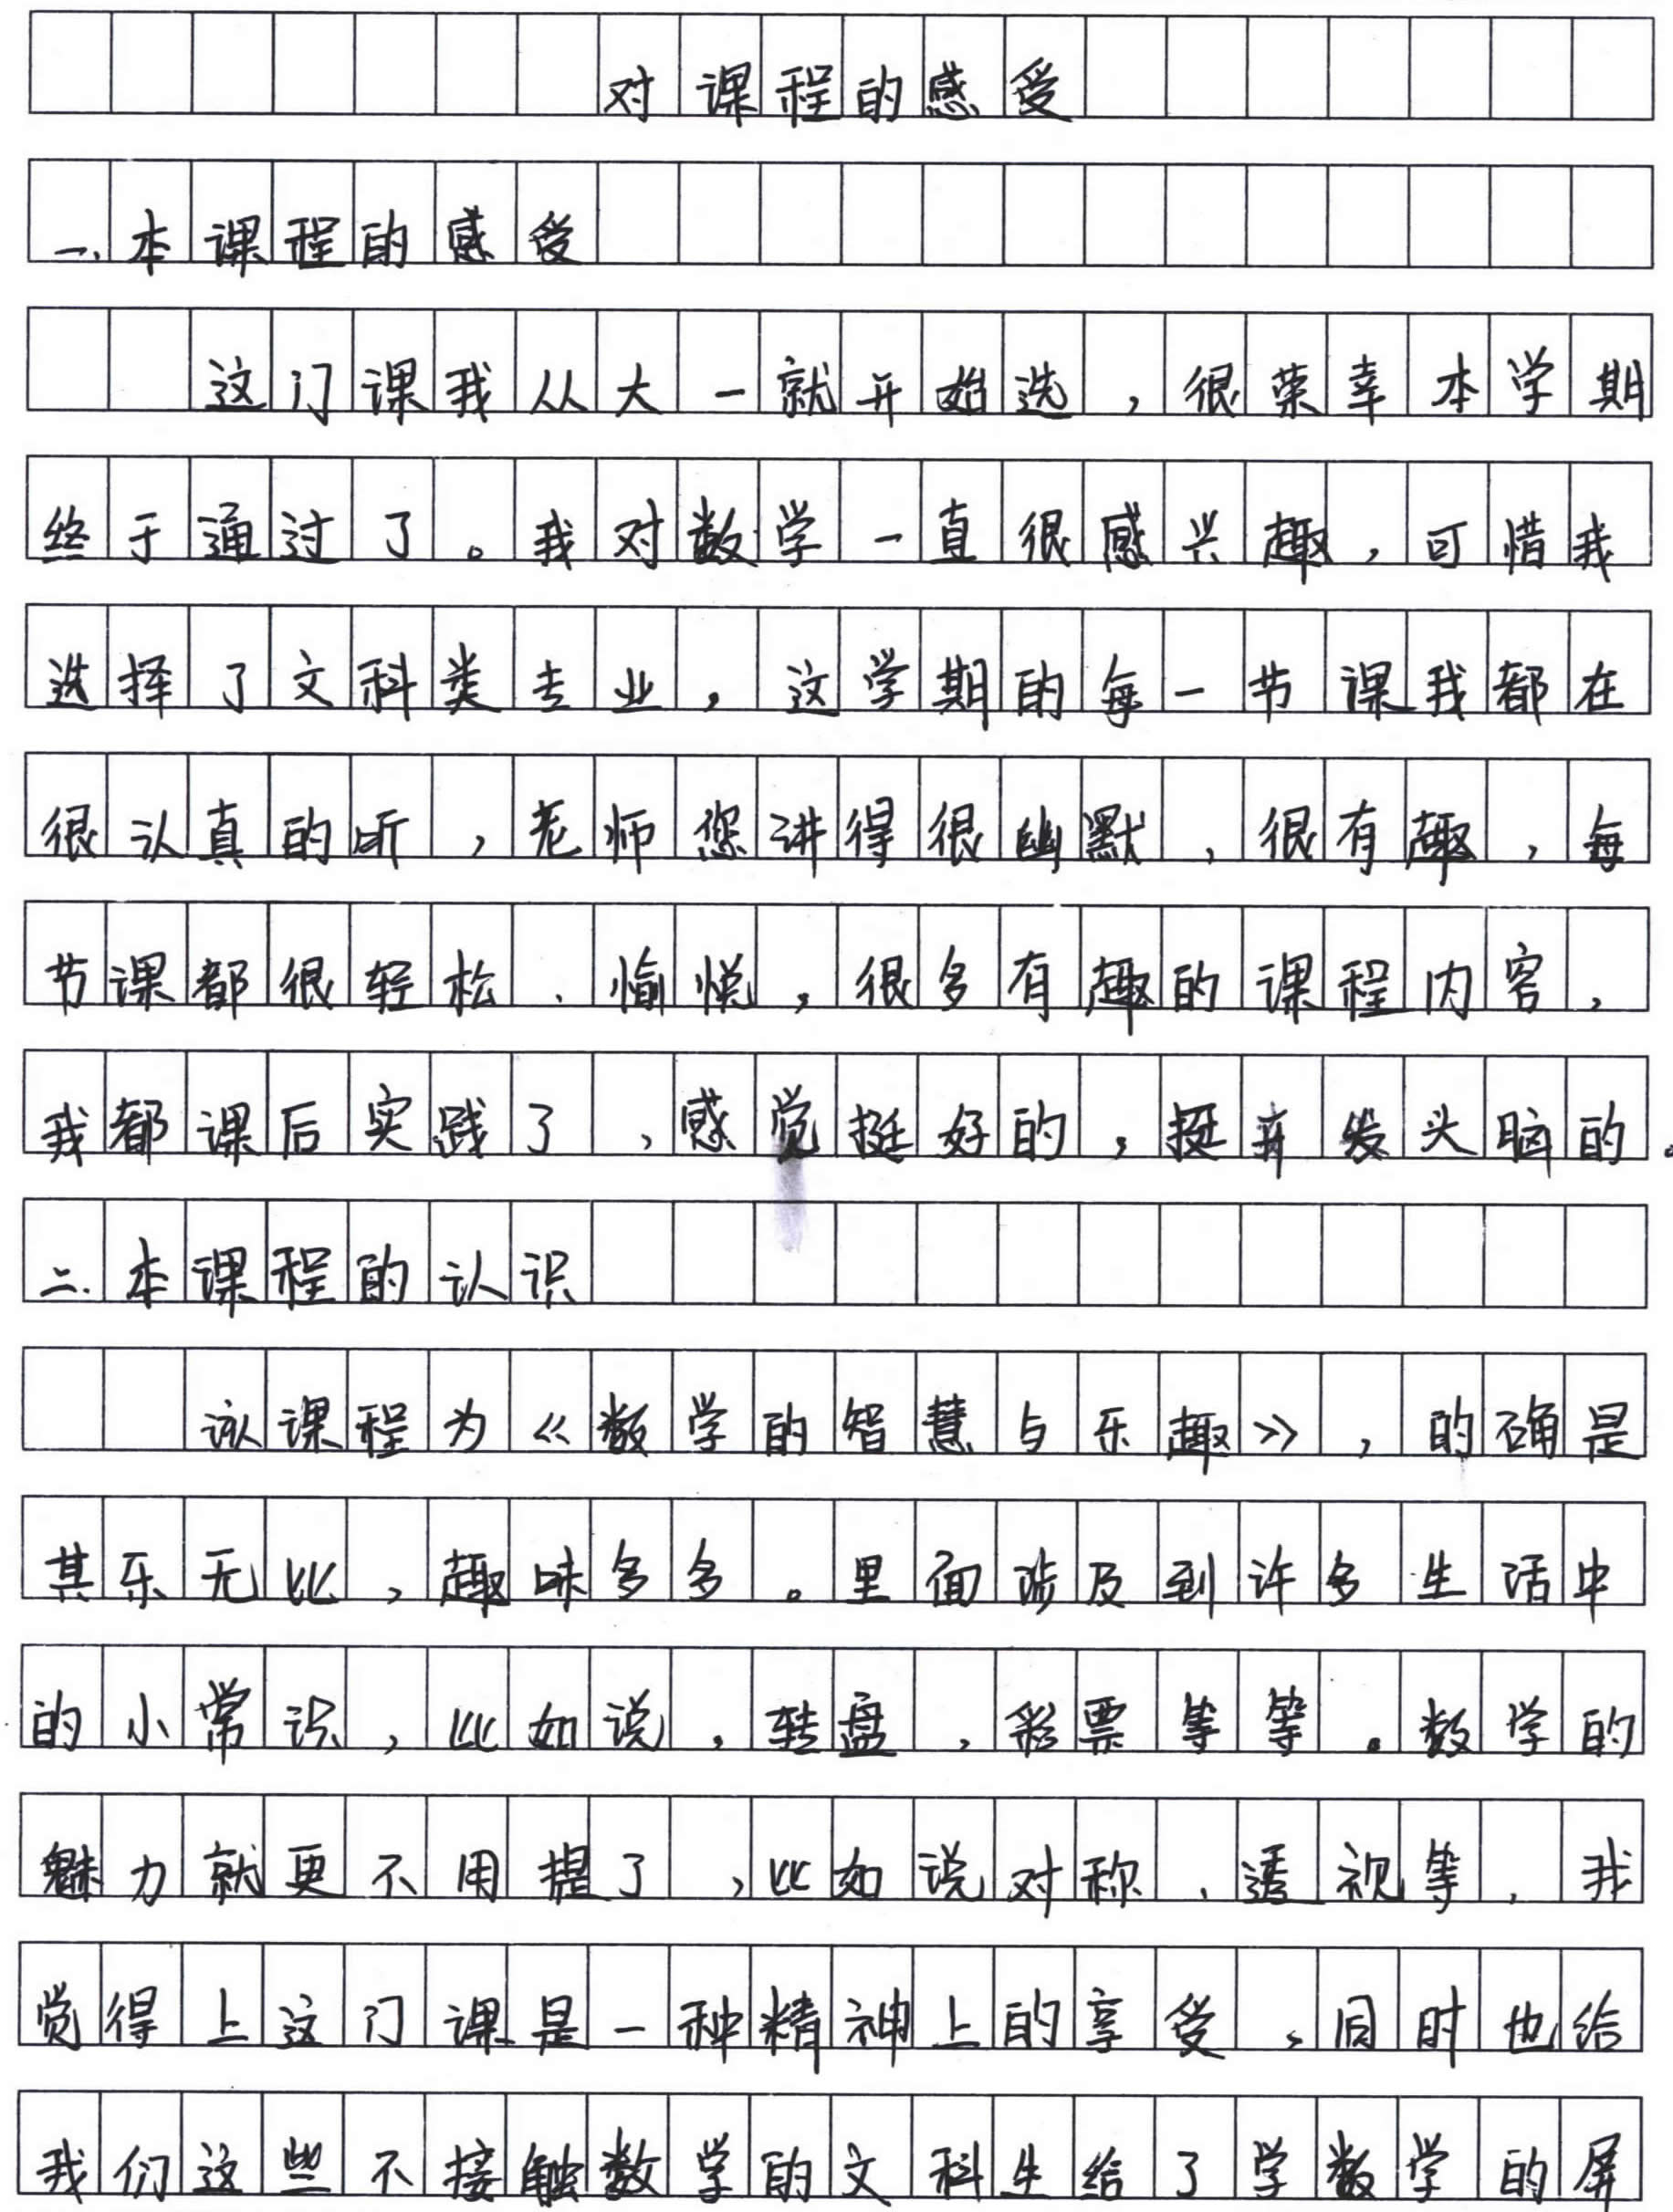 对课程的感受
一、本课程的感受
这门课我从大一就开始选，很荣幸本学期
终于通过了。我对数学一直很感兴趣，可惜我
选择了文科类专业，这学期的每一节课我都在
很认真的听，老师您讲得很幽默，很有趣，每
节课都很轻松、愉悦，很多有趣的课程内容，
我都课后实践了，感觉挺好的，挺开发头脑的。
二.本课程的认识
该课程为《数学的智慧与乐趣》，的确是
其乐无比，趣味多多。里面涉及到许多生活中
的小常识，比如说，转盘，彩票等等。数学的
魅力就更不用提了，比如说对称、透视等，我
觉得上这门课是一种精神上的享受，同时也给
我们这些不接触数学的文科生给了学数学的屏